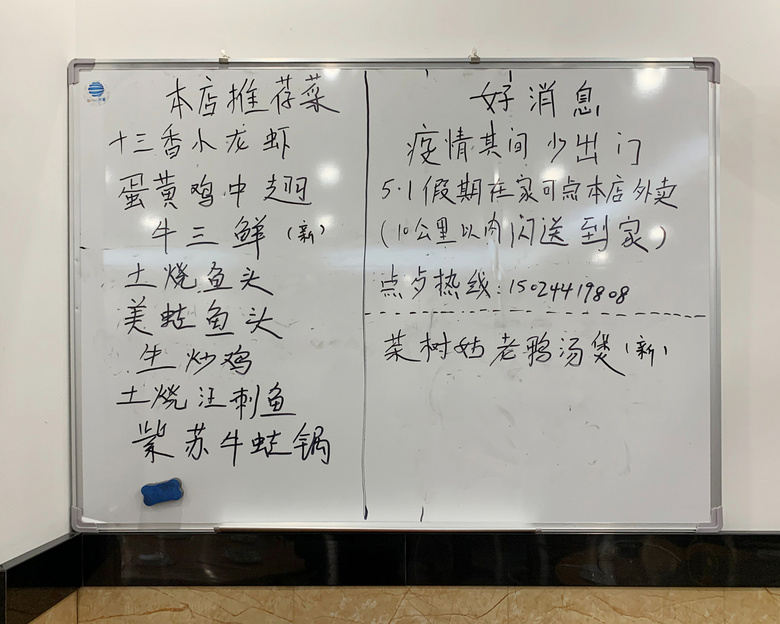 本店推荐菜
十三香小龙虾
蛋黄鸡中翅
牛三鲜（新）
土烧鱼头
美蛙鱼头
生炒鸡
土烧汪刺鱼
紫苏牛蛙锅
好消息
疫情其间少出门
5·1假期在家可点本店外卖
（10公里以内闪送到家）
点歺热线：15024419808
菜树菇老鸭汤煲（新）